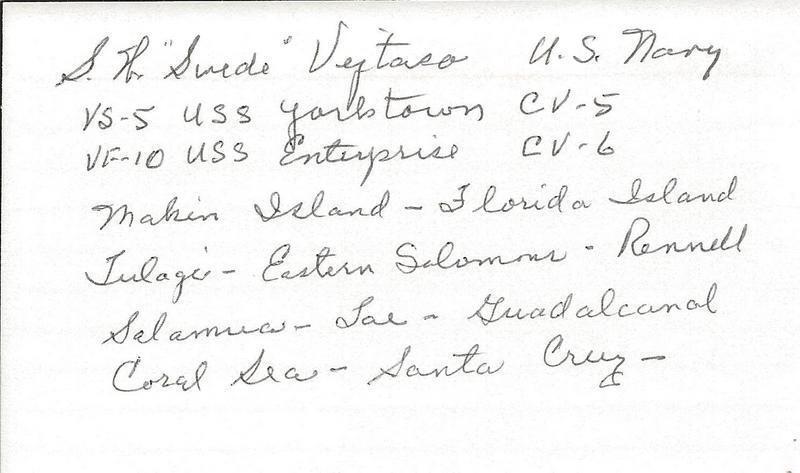 S. W. "Swede" Vejtasa U.S. Navy
VS-5 USS Yorktown CV-5
VF-10 USS Enterprise CV-6
Makin Island - Florida Island
Tulagi - Eastern Solomons - Rennell
Salamua - Lae - Guadalcanal
Coral Sea - Santa Cruz -